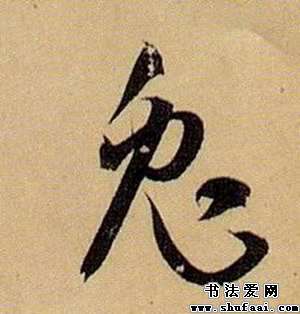 兔
书法爱网
www.shufaai.com